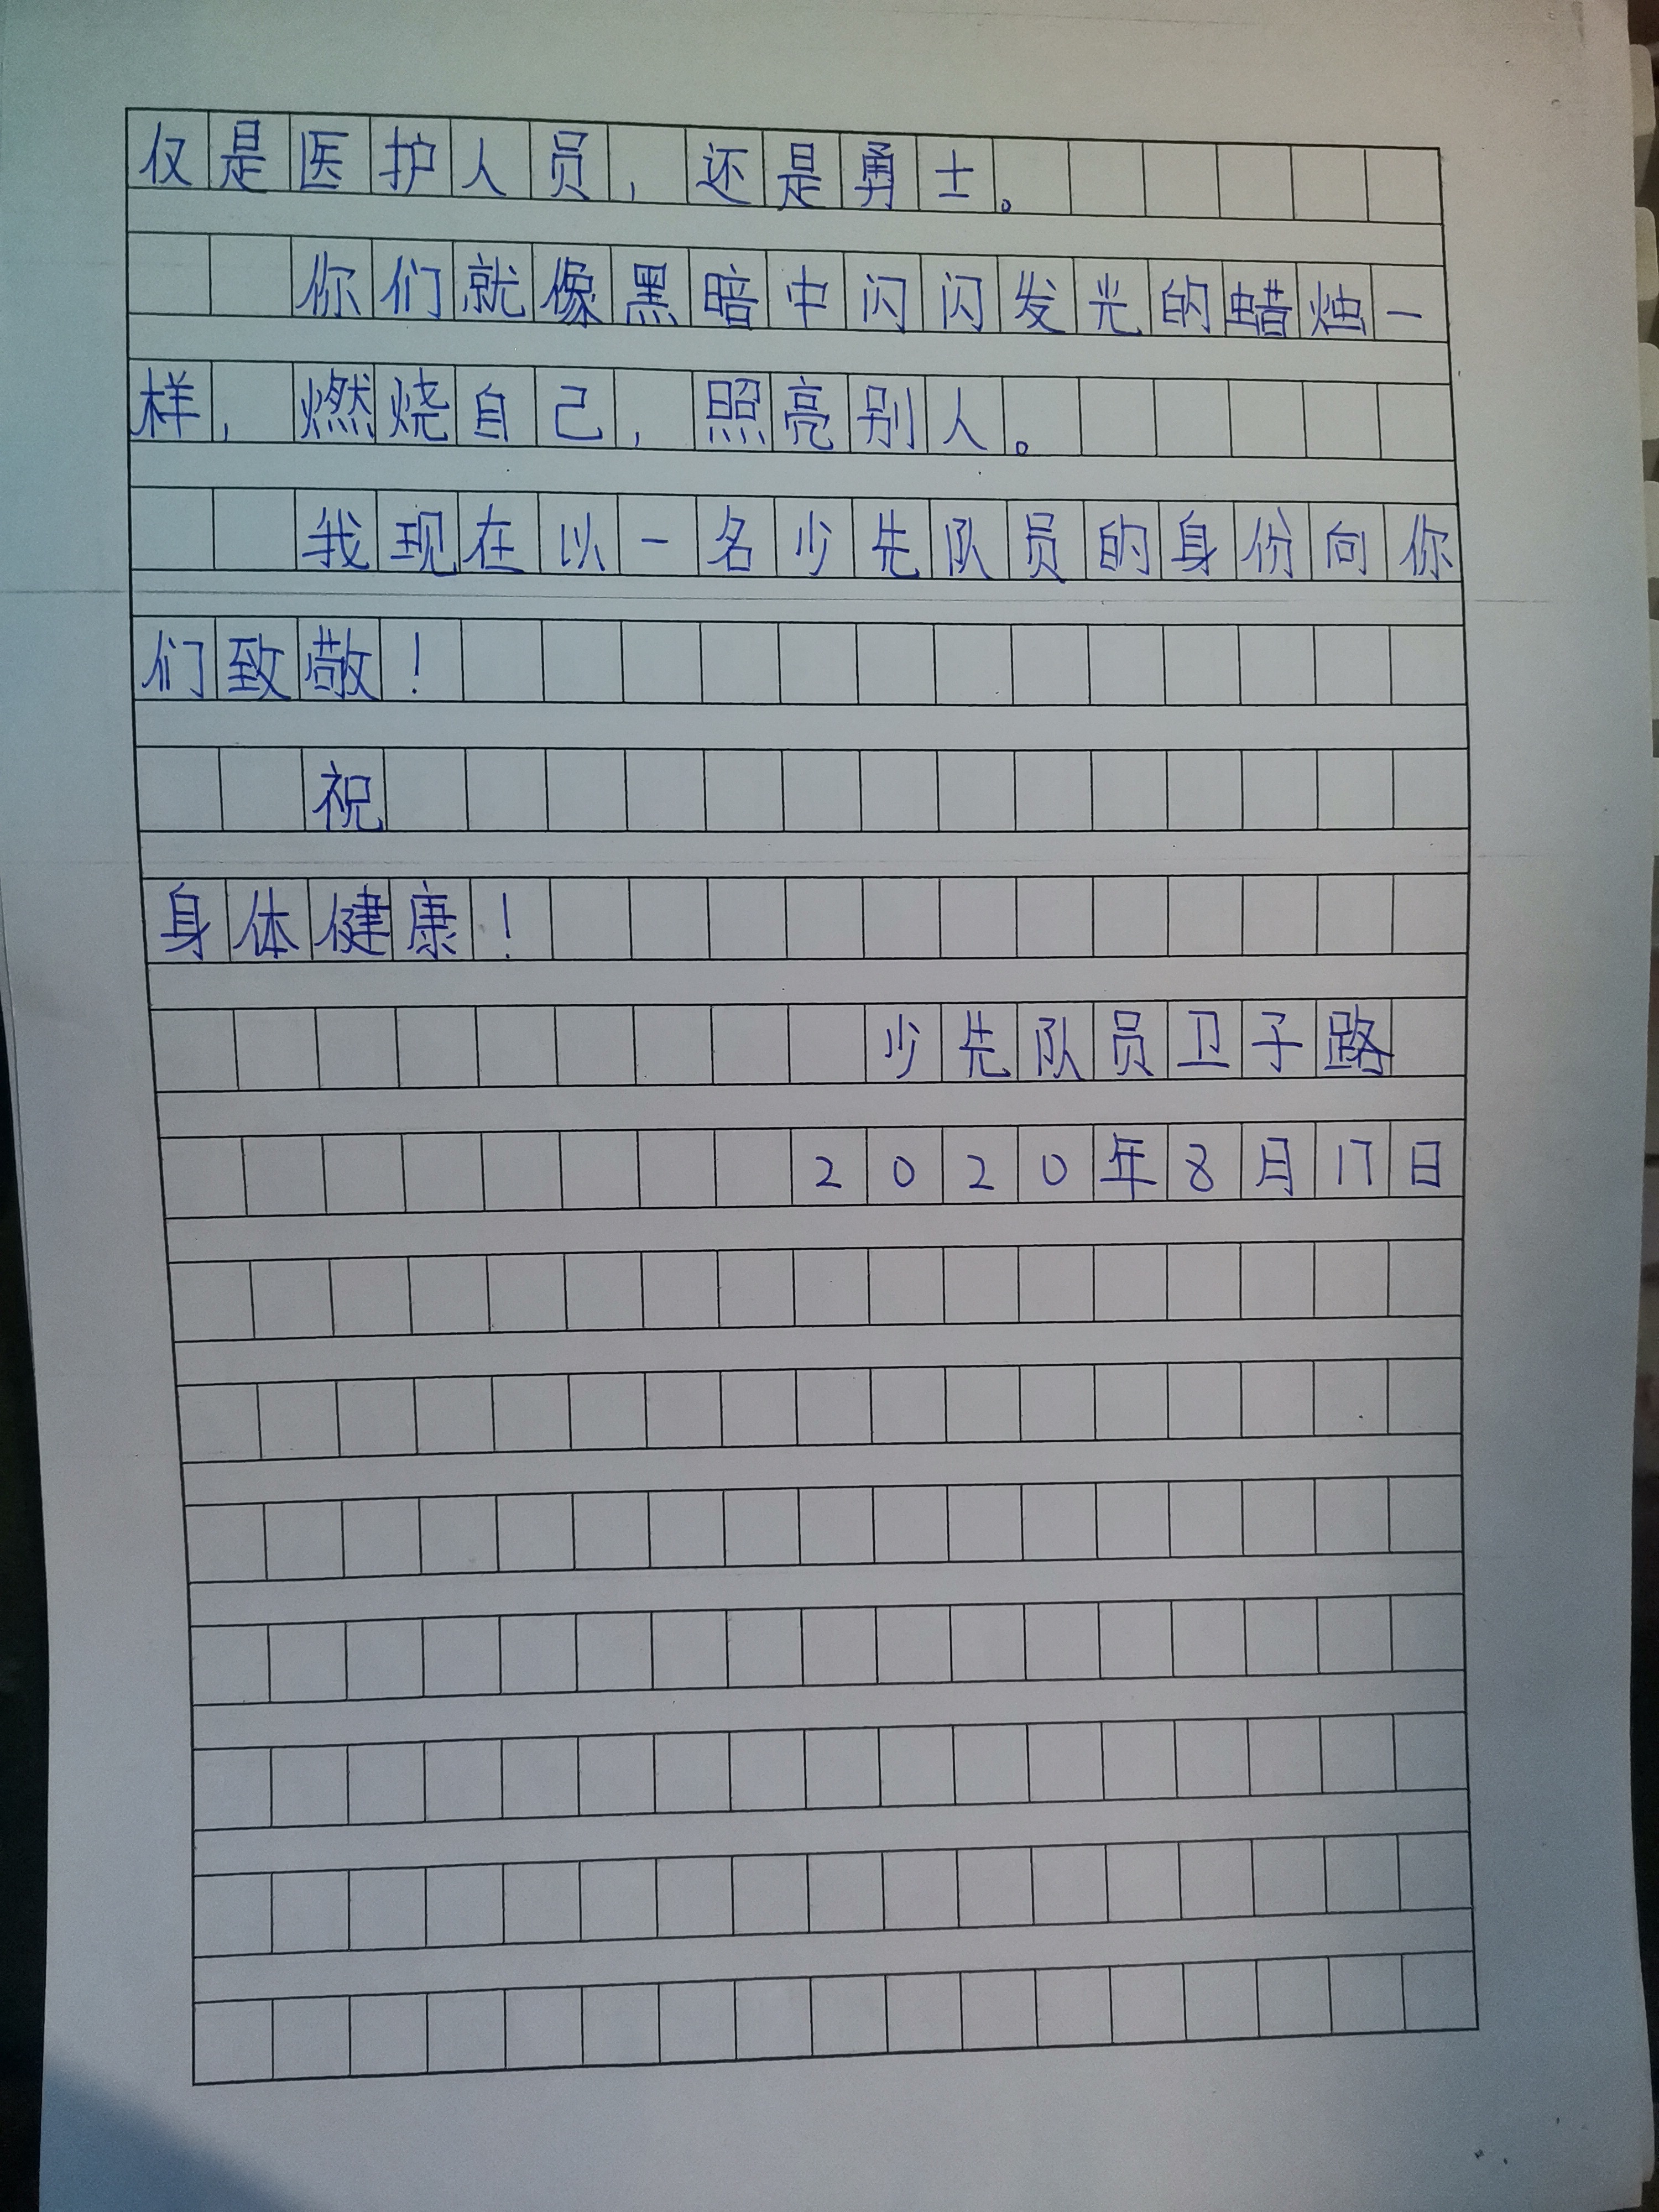 仅是医护人员，还是勇士。
你们就像黑暗中闪闪发光的蜡烛一
样，燃烧自己，照亮别人。
我现在以一名少先队员的身份向你
们致敬！
祝
身体健康！
少先队员卫子路
2020年8月17日